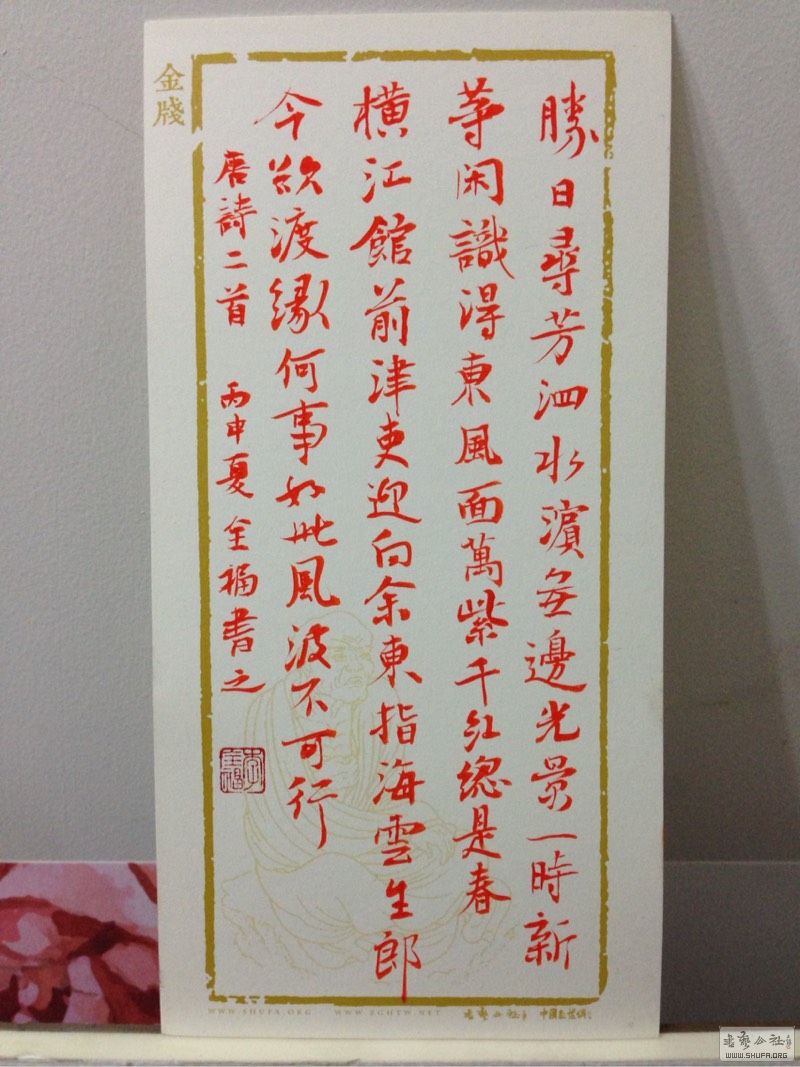 勝日尋芳泗水濱無邊光景一時新
等閑識得東風面萬紫千紅總是春
橫江館前津吏迎向余東指海雲生郎
今欲渡緣何事如此風波不可行
唐詩二首 丙申夏 全福書之
金牋
WWW.SHUFA.ORG WWW.ZGHTW.NET
書藝公社
WWW.SHUFA.ORG